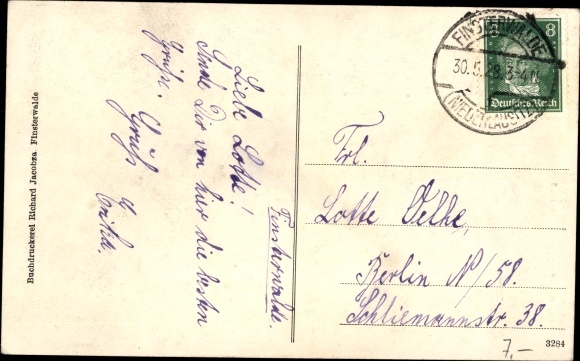 Finsterwalde.
Liebe Lotte!
Sende Dir von hier die besten
Grüße. Gruß
Buchdruckerei Richard Jacobza Finsterwalde
FINSTERWALDE
30.5.28.3-4N.
(NIEDERLAUSITZ)
8
Deutsches Reich
Frl.
Lotte Oelke,
Berlin N/58.
Schliemannstr. 38.
3284
7,–